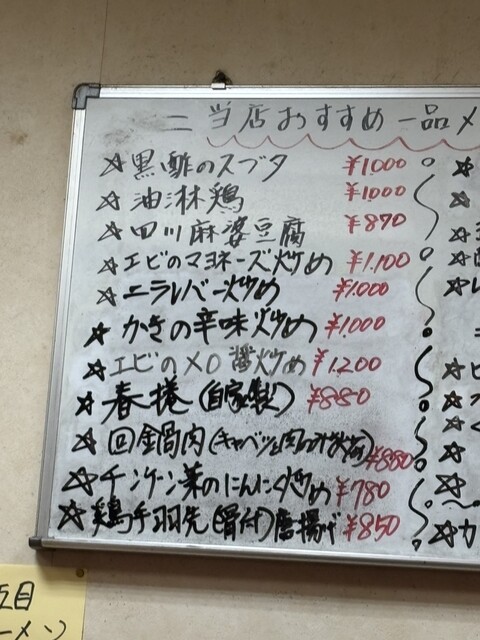 = 当店おすすめ一品メ
☆黒酢のスブタ ¥1000
☆油淋鶏 ¥1000
☆四川麻婆豆腐 ¥870
☆エビのマヨネーズ炒め ¥1,100
☆ニラレバー炒め ¥1.000
☆かきの辛味炒め ¥1,000
☆エビのXO醤炒め ¥1.200
☆春捲(自家製) ¥880
☆回鍋肉(キャベツと肉のみそ炒め) ¥880
☆チンゲン菜のにんにく炒め ¥780
☆鶏手羽先(骨付)唐揚げ ¥850
五目
ーメン